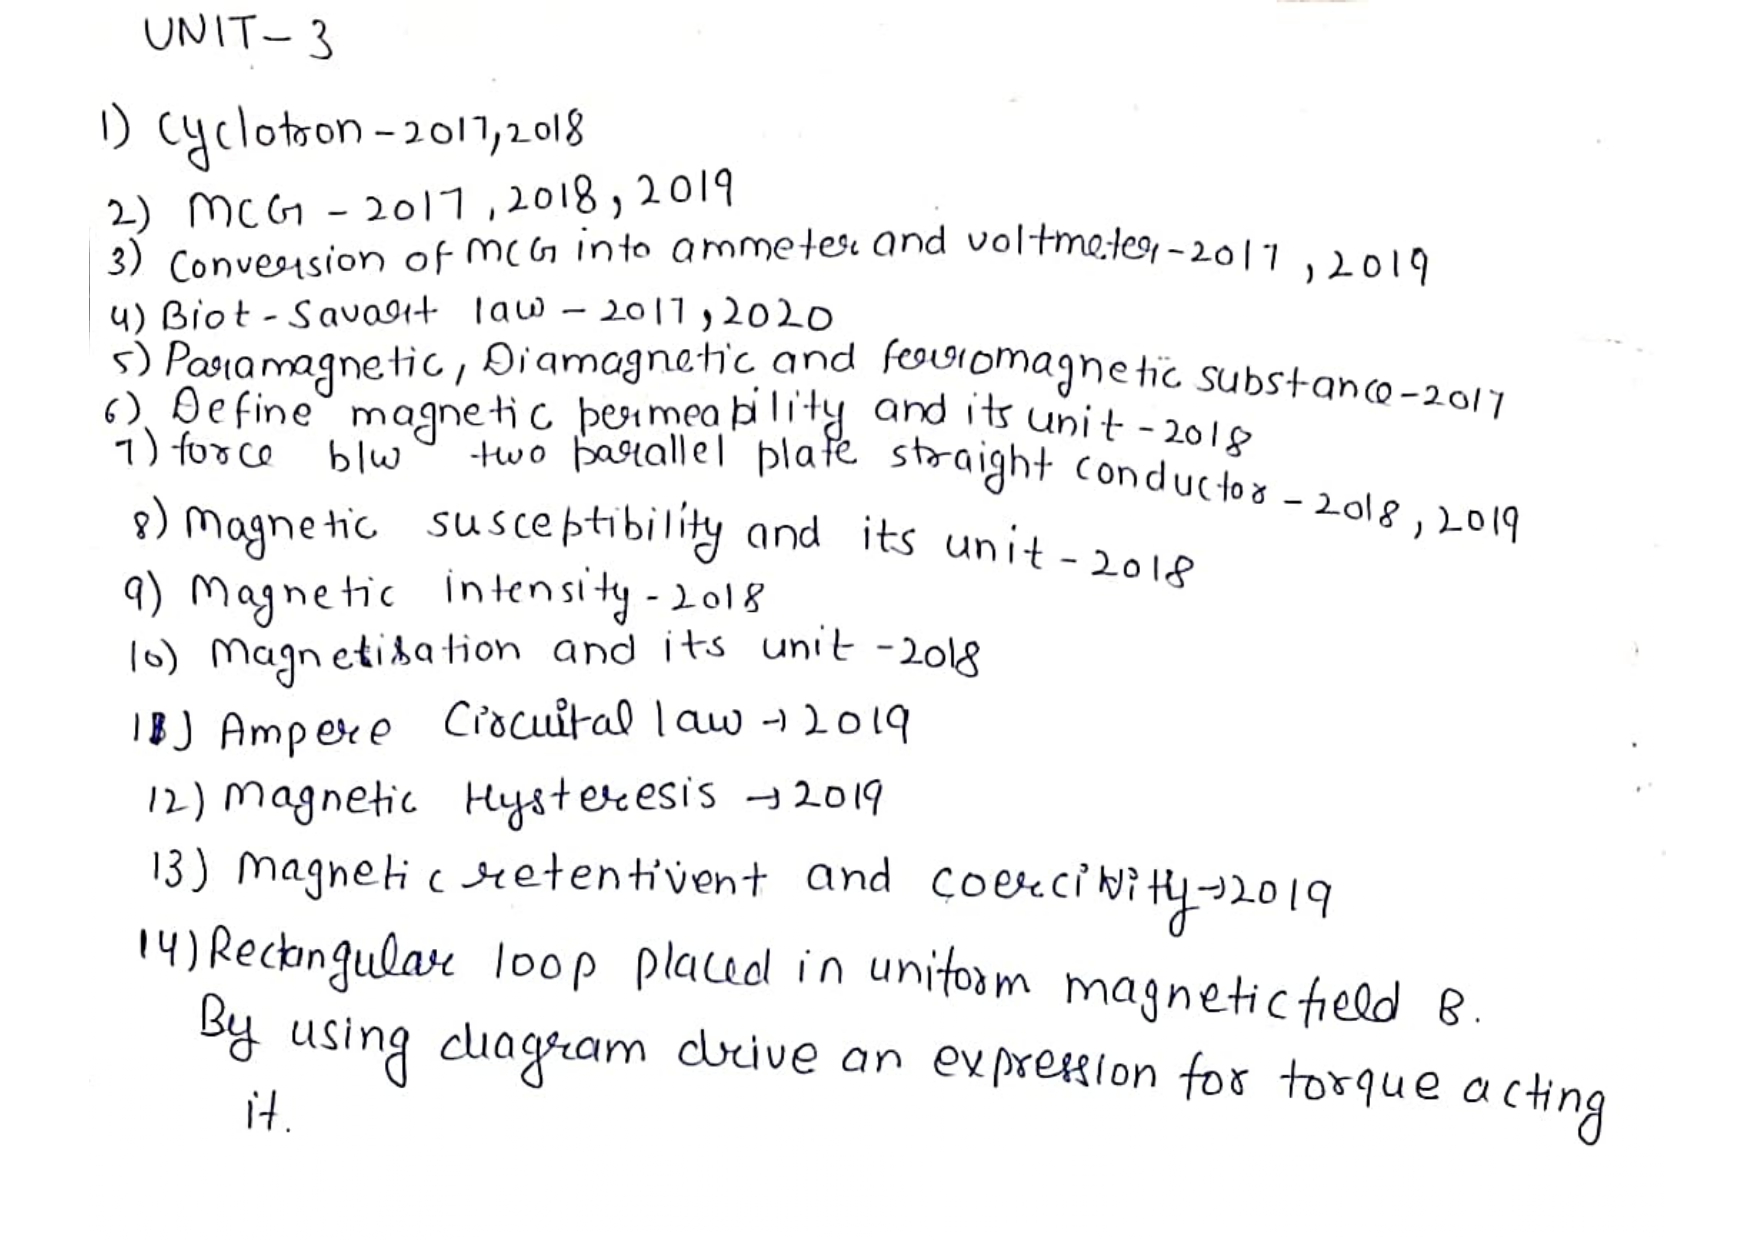 UNIT-3
1) Cyclotron - 2017,2018
2) MCG - 2017, 2018, 2019
3) Conversion of MCG into ammeter and voltmeter - 2017, 2019
4) Biot - Savart law - 2017, 2020
5) Paramagnetic, Diamagnetic and ferromagnetic substance - 2017
6) Define magnetic permeability and its unit - 2018
7) force b/w two parallel plate straight conductor - 2018, 2019
8) Magnetic susceptibility and its unit - 2018
9) Magnetic intensity - 2018
10) Magnetisation and its unit - 2018
11) Ampere Circuital law → 2019
12) Magnetic Hysteresis → 2019
13) Magnetic retentivent and coercivity → 2019
14) Rectangular loop placed in uniform magnetic field B.
By using diagram drive an expression for torque acting
it.